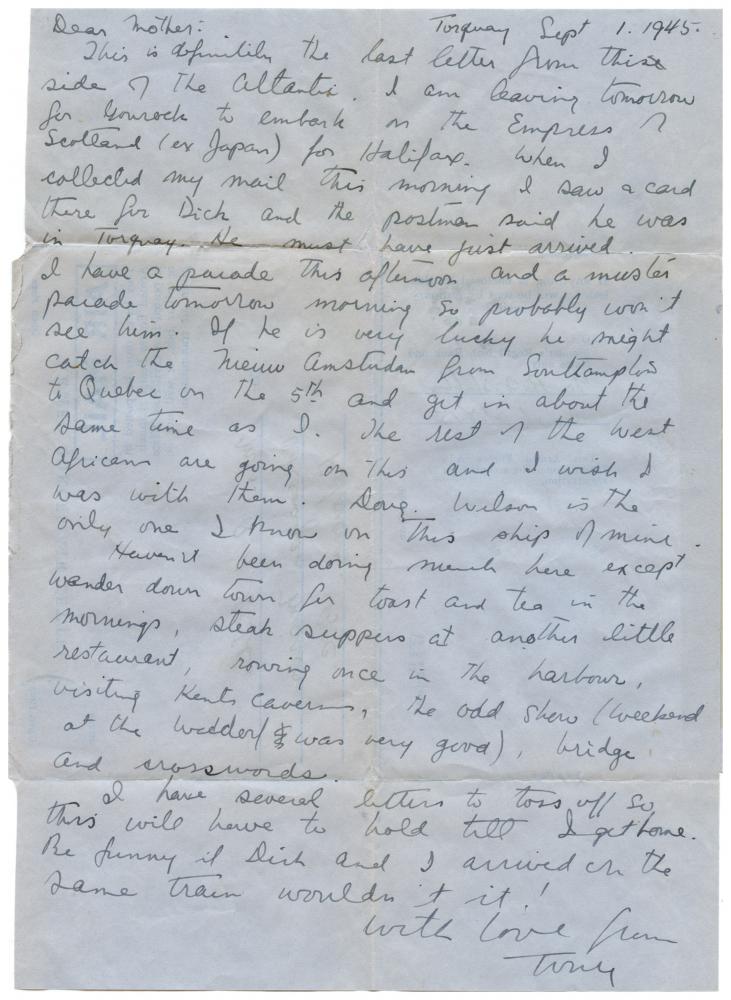 Torquay Sept 1. 1945.
Dear Mother:
This is definitily the last letter from this
side of the Atlantic. I am leaving tomorrow
for Gourock to embark on the Empress of
Scotland (ex Japan) for Halifax. When I
collected my mail this morning I saw a card
there for Dick and the postman said he was
in Torquay. He must have just arrived.
I have a parade this afternoon and a muster
parade tomorrow morning so probably won't
see him. If he is very lucky he might
catch the Nieuw Amsterdam from Southampton
to Quebec on the 5th and get in about the
same time as I. The rest of the West
Africans are going on this and I wish I
was with them. Doug. Wilson is the
only one I know on this ship of mine.
Haven't been doing much here except
wander down town for toast and tea in the
mornings, steak suppers at another little
restaurant, rowing once in the harbour,
visiting Kents Caverns, the odd show (Weekend
at the Waldorf was very good), bridge
and crosswords.
I have several letters to toss off so
this will have to hold till I get home.
Be funny if Dick and I arrived on the
same train wouldn't it!
With love from
Tony